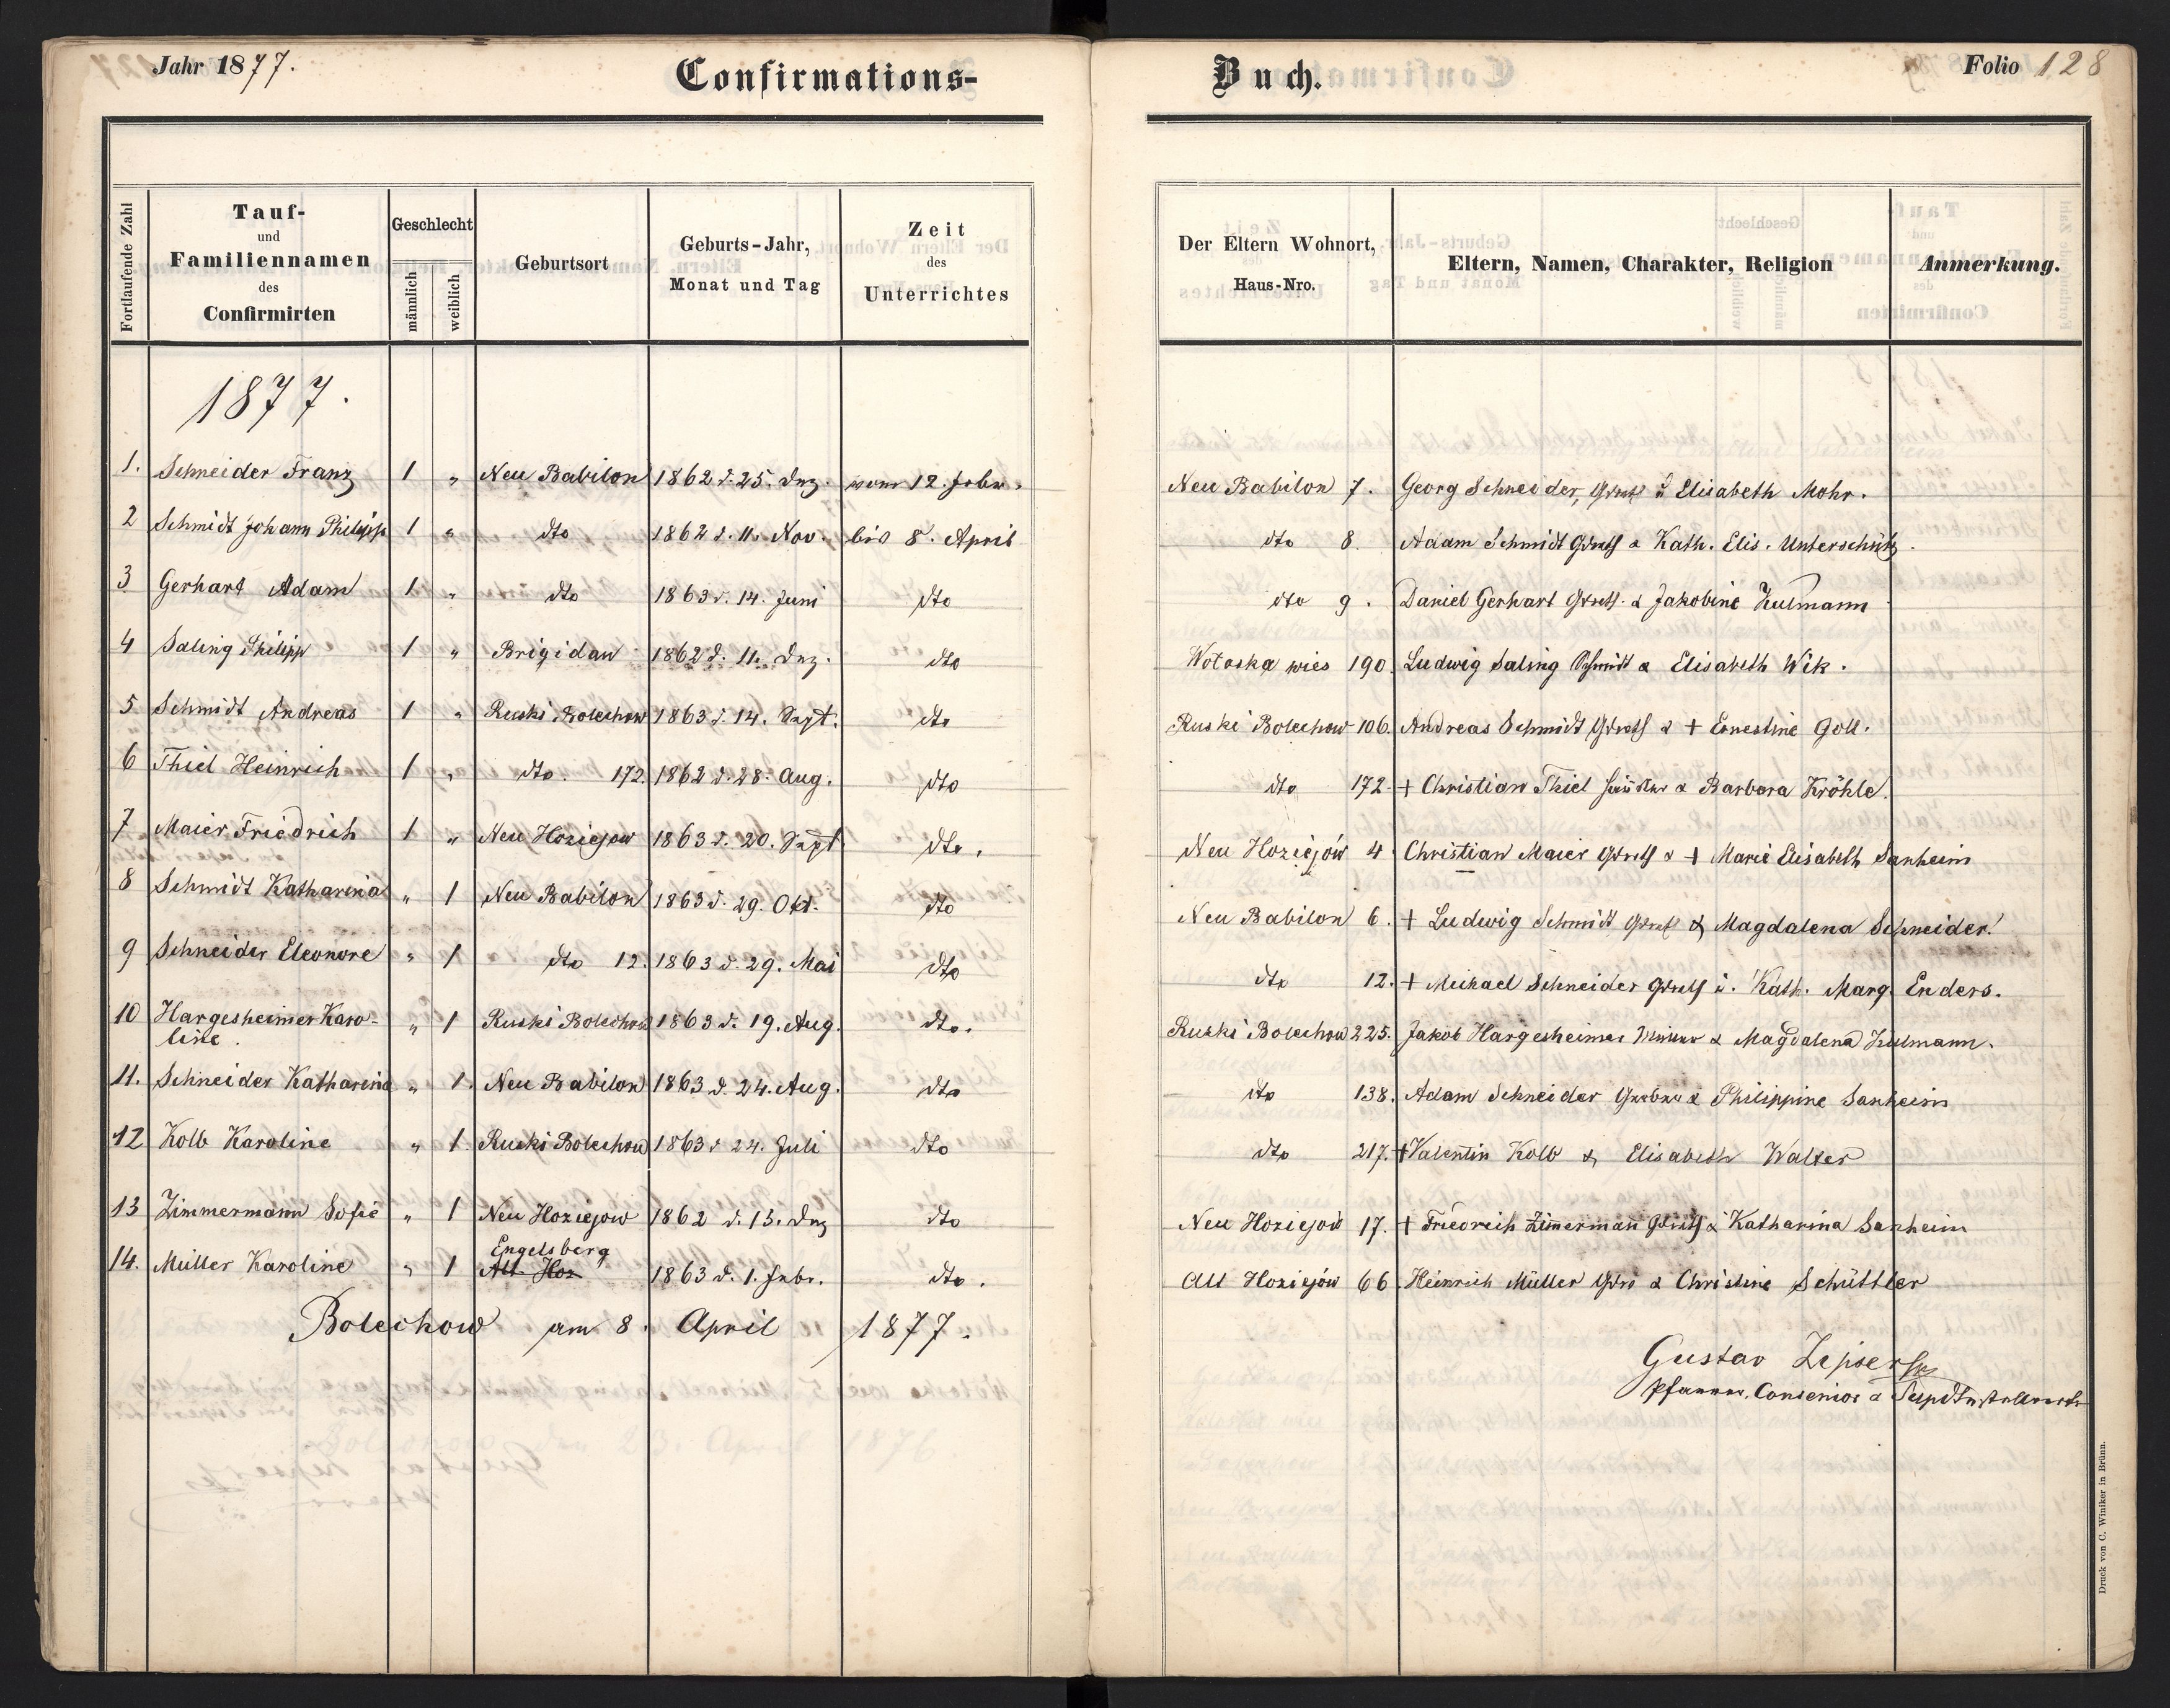 Jahr 1877.
Confirmations-
Buch.
Folio 128
Fortlaufende Zahl
Tauf-
und
Familiennamen
des
Confirmirten
Geschlecht
männlich
weiblich
Geburtsort
Geburts-Jahr,
Monat und Tag
Zeit
des
Unterrichtes
Der Eltern Wohnort,
Haus-Nro.
Eltern, Namen, Charakter, Religion
Anmerkung.
1877.
1. Schneider Franz 1 „ Neu Babilon 1862 d. 25. Dez. vom 12. Febr. Neu Babilon 7. Georg Schneider, Grndb u Elisabeth Mohr.
2 Schmidt Johann Philipp 1 „ dto 1862 d. 11. Nov. bis 8. April dto 8. Adam Schmidt & Kath. Elis. Unterschütz.
3 Gerhart Adam 1 „ dto 1863 d. 14. Juni dto dto 9. Daniel Gerhart & Jakobine Kulmann
4 Saling Philipp 1 „ Brigidau 1862 d. 11. Dez. dto Wotoska wies 190. Ludwig Saling Schmidt & Elisabeth Wik.
5 Schmidt Andreas 1 „ Ruski Bolechow 1863 d. 14. Sept. dto Ruski Bolechow 106. Andreas Schmidt & + Ernestine Goll.
6 Thiel Heinrich 1 „ dto. 172. 1862 d. 28. Aug. dto dto 172. + Christian Thiel & Barbara Kröhle.
7 Maier Friedrich 1 „ Neu Hoziejow 1863 d. 20. Sept dto. Neu Hoziejów 4 Christian Maier & + Marie Elisabeth Sanheim
8 Schmidt Katharina „ 1 Neu Babilon 1863 d. 29. Okt. dto Neu Babilon 6. + Ludwig Schmidt & Magdalena Schneider.
9 Schneider Eleonore „ 1 dto 12. 1863 d. 29. Mai dto dto 12. + Michael Schneider u. Kath. Marg. Enders.
10 Hargesheimer Karo-
line. „ 1 Ruski Bolechow 1863 d. 19. Aug. dto. Ruski Bolechow 225. Jakob Hargesheimer & Magdalena Kulmann.
11. Schneider Katharina „ 1. Neu Babilon 1863 d. 24. Aug. dto dto 138. Adam Schneider & Philippine Sanheim
12 Kolb Karoline „ 1. Ruski Bolechow 1863 d 24. Juli dto dto 217. + Valentin Kolb & Elisabeth Walter
13 Zimmermann Sofie „ 1 Neu Hoziejow 1862 d. 13. Dez dto Neu Hoziejow 17. + Friedrich Zimmerman & Katharina Sanheim
Engelsberg
14. Müller Karoline „ 1 Alt Hoz 1863 d. 1. Febr. dto. Alt Hoziejów 66 Heinrich Müller & Christine Schüttler
Bolechow am 8. April 1877.
Gustav Zipser
Pfarrer, Consenior &
Druck von C. Winiker in Brünn.